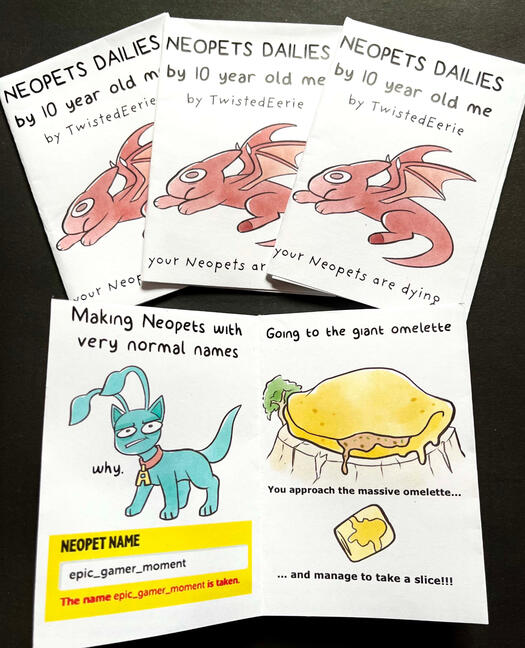 NEOPETS DAILIES
by 10 year old m
by TwistedEerie
your Neop
NEOPETS DAILIES
by 10 year old me
by TwistedEerie
your Neopets ar
NEOPETS DAILIES
by 10 year old me
by TwistedEerie
your Neopets are dying
Making Neopets with
very normal names
why.
NEOPET NAME
epic_gamer_moment
The name epic_gamer_moment is taken.
Going to the giant omelette
You approach the massive omelette...
... and manage to take a slice!!!